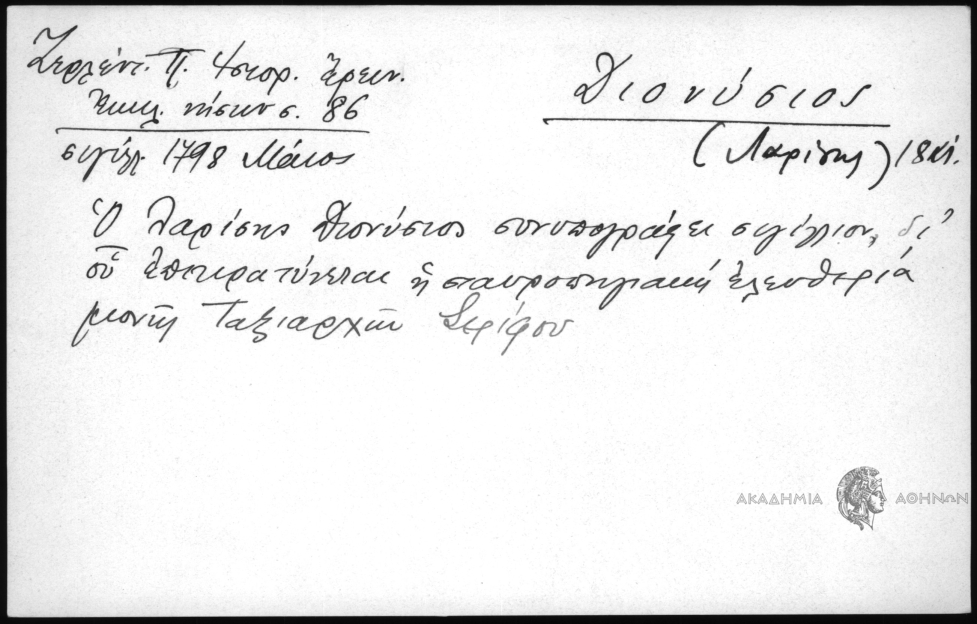 Ζερλέντ. Π. Ἱστορ. ἔρευν.
Ἐκκλ. νήσων σ. 86
σιγίλλ. 1798 Μάιος
Διονύσιος
(Λαρίσης) 18 αἰ.
Ὁ Λαρίσης Διονύσιος συνυπογράφει σιγίλλιον, δι'
οὗ ἐπικρατύνεται ἡ σταυροπηγιακή ἐλευθερία
μονῆς Ταξιαρχῶν Σερίφου
ΑΚΑΔΗΜΙΑ ΑΘΗΝΩΝ